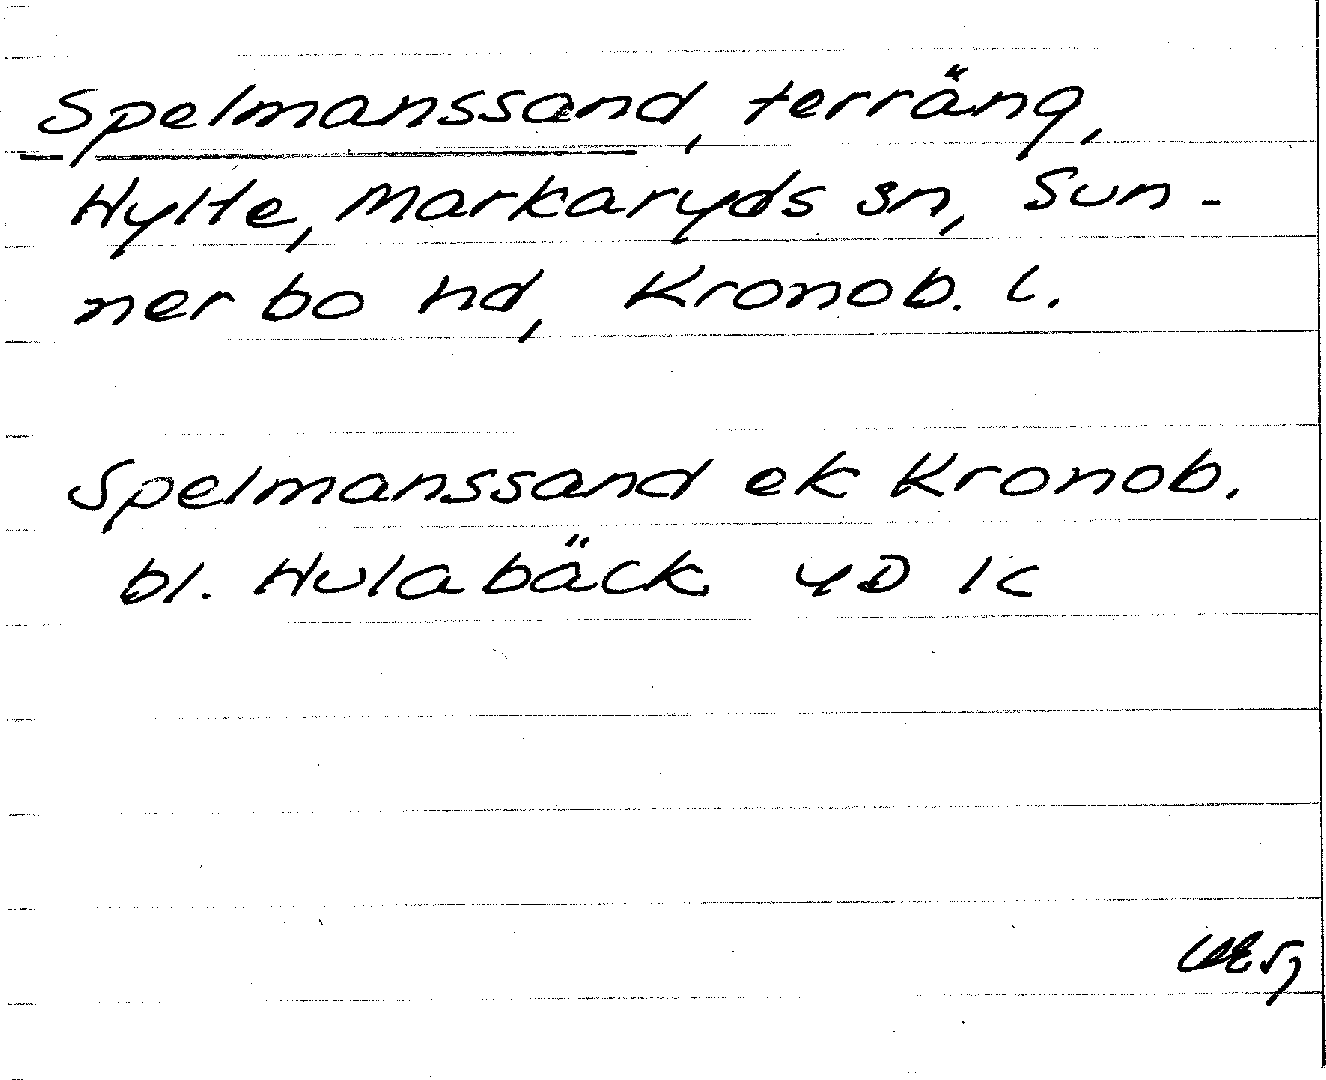 Spelmanssand, terräng,
Hylte, Markaryds sn, Sun-
nerbo hd, Kronob. l.
Spelmanssand ek Kronob.
bl. Hulabäck 4D 1c